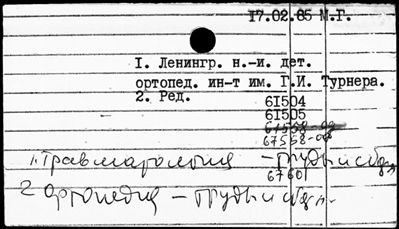 17.02.85 М.Г.
I. Ленингр. н.-и. дет.
ортопед. ин-т им. Г.И. Турнера.
2. Ред.
6I504
6I505
67558-08
1. Травматология — труды и сб.
6760I
2 Ортопедия — труды и сб.